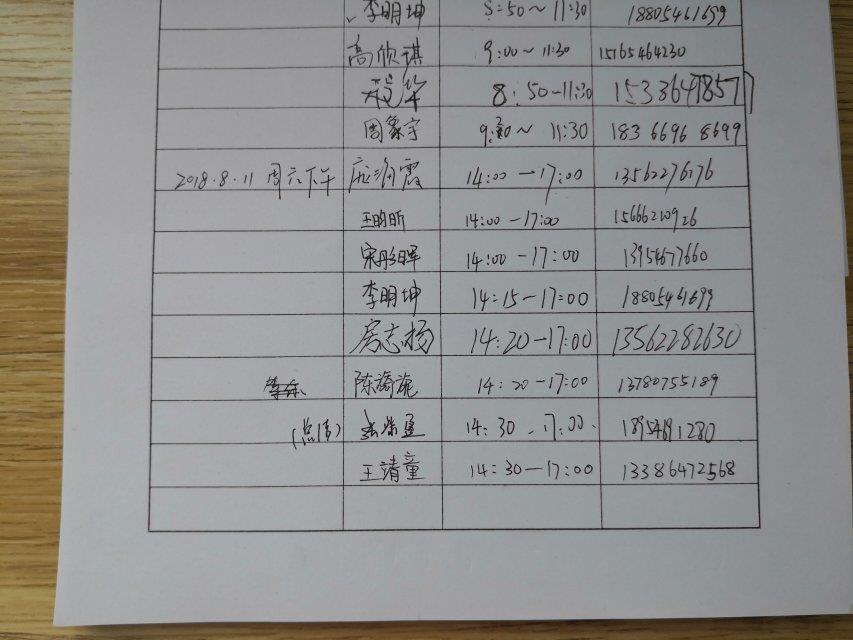 李明坤 8:50～11:30 18805461699
高欣琪 9:00～11:30 15165464230
8:50-11:30 15336417857
周象宇 9:20～11:30 18366968699
2018.8.11 周六下午 14:00-17:00 13562276176
王昀昕 14:00-17:00 15666210926
宋彤晖 14:00-17:00 13954677660
李明坤 14:15-17:00 18805461699
房志杨 14:20-17:00 13562282630
陈漪旎 14:20-17:00 13780755189
14:30-17:00 18954691280
王靖童 14:30-17:00 13386472568